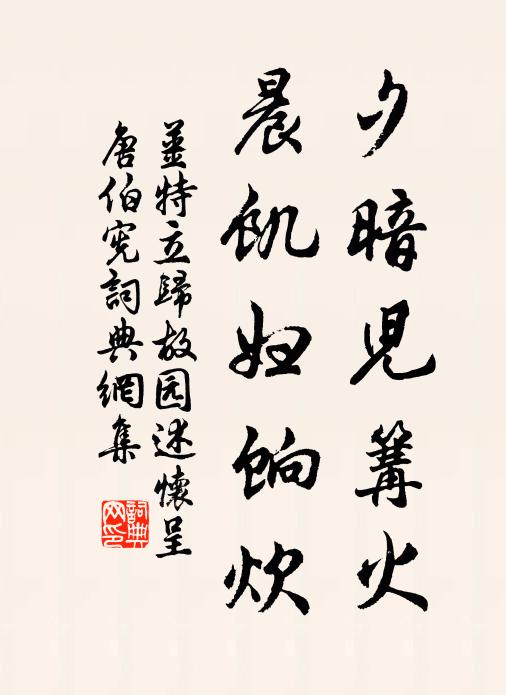 夕暗儿篝火
晨飢妇餉炊
薑特立歸故园述懷呈
唐伯宪詞典網集
詞典网印